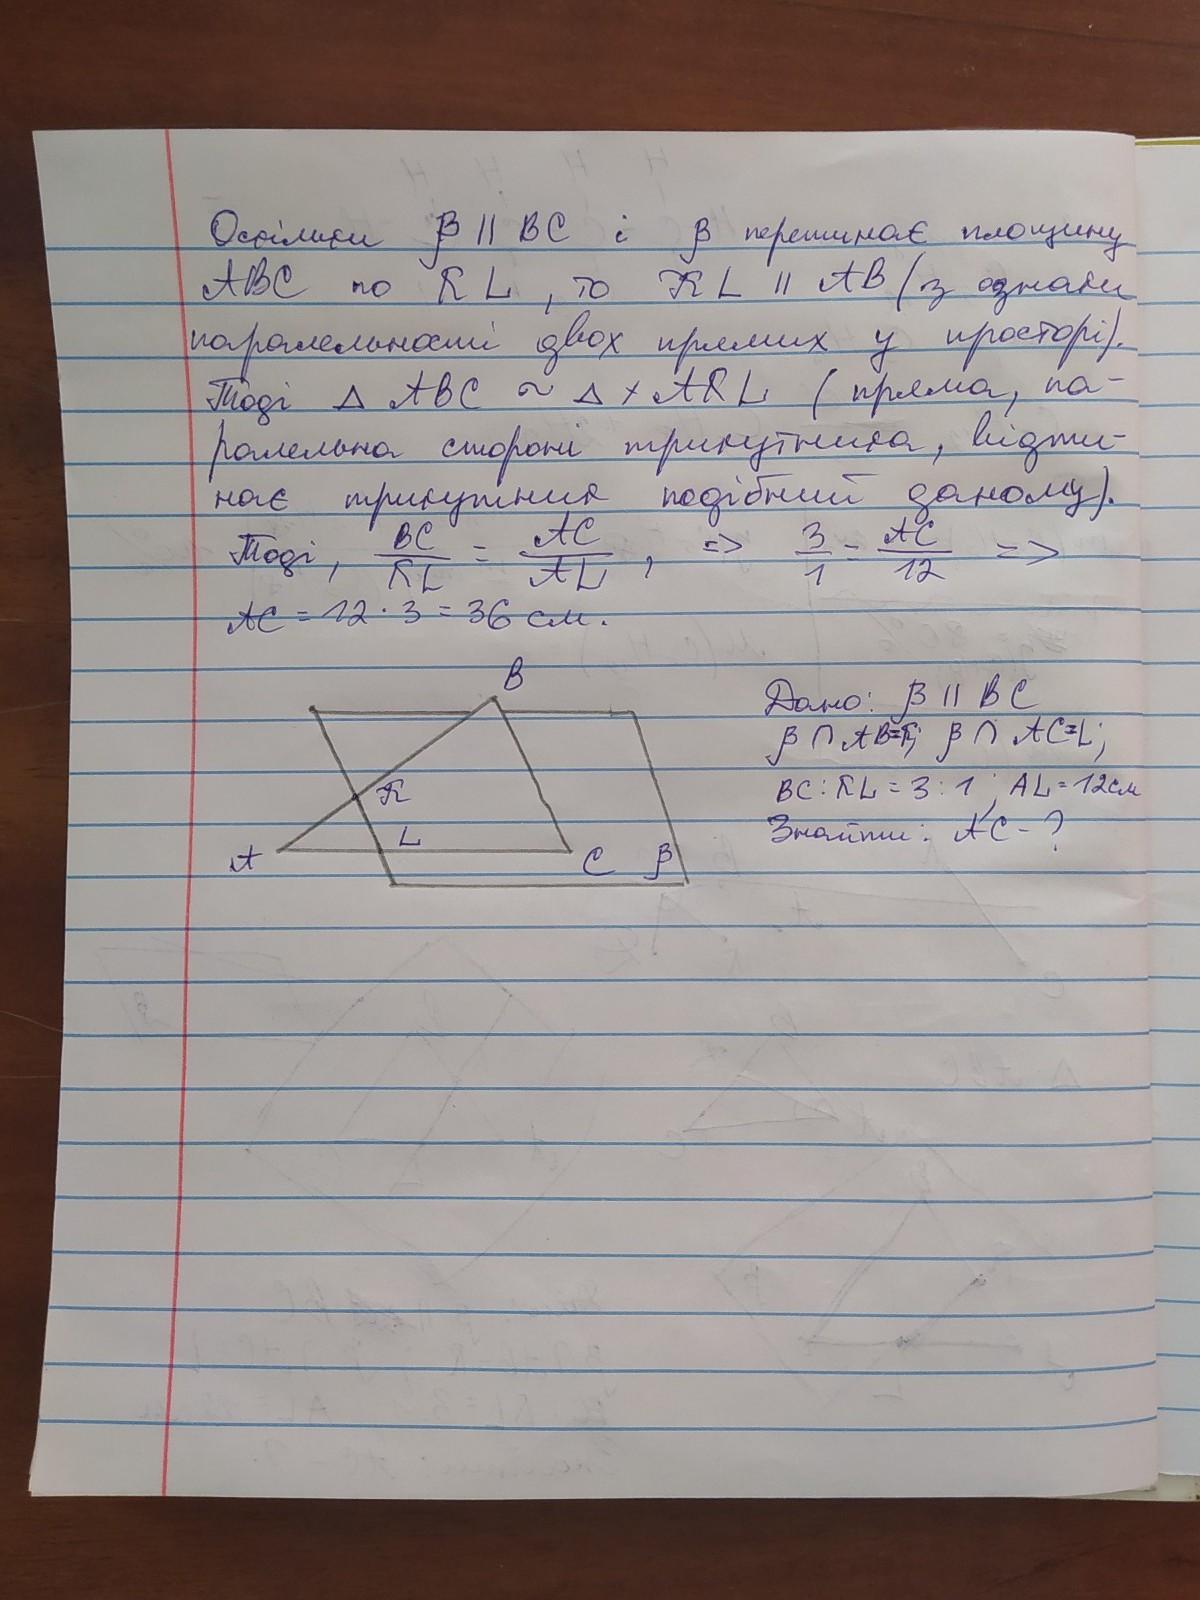 Оскільки β || BC і β перетинає площину
ABC по KL, то KL || AB (з ознаки
паралельності двох прямих у просторі).
Тоді △ ABC ~ △ AKL (пряма, па-
ралельна стороні трикутника, відти-
нає трикутник подібний даному).
Тоді, BC/KL = AC/AL, => 3/1 = AC/12 =>
AC = 12 · 3 = 36 см.
B
K
L
A
C
β
Дано: β || BC
β ∩ AB=K; β ∩ AC=L;
BC : KL = 3 : 1 ; AL = 12см
Знайти: AC - ?